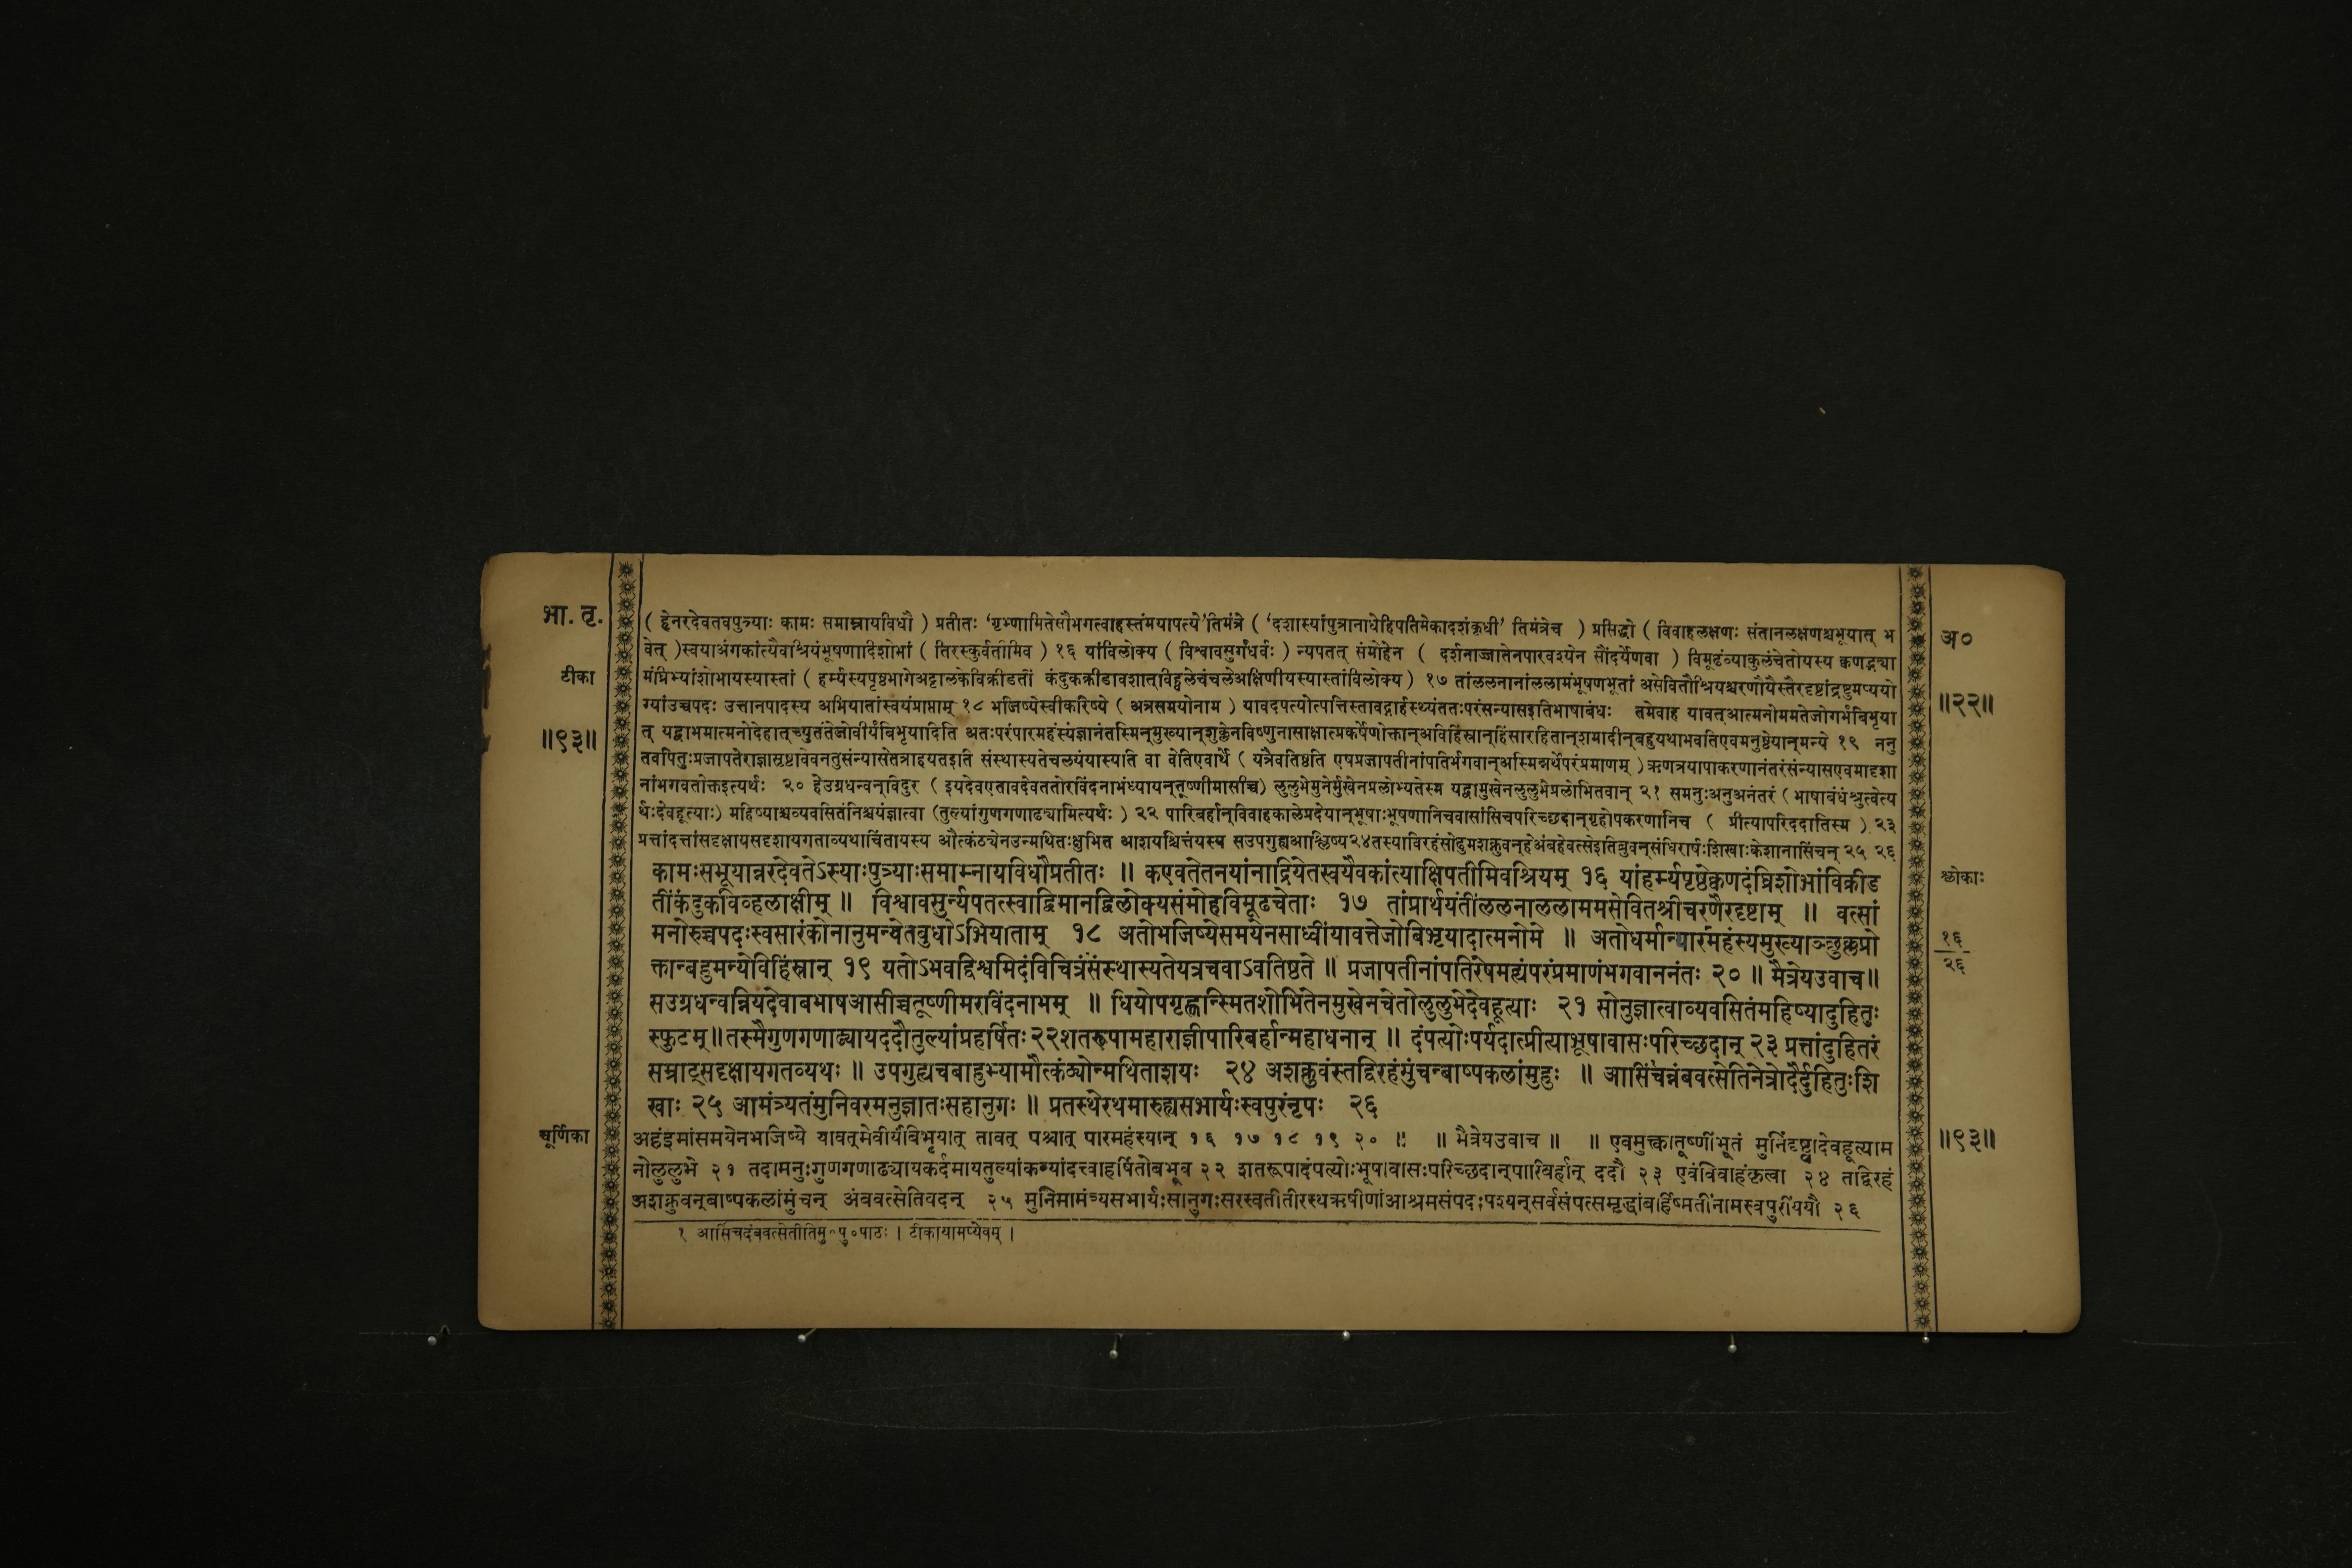 भा. तृ.
( हेनरदेवतवपुत्र्याः कामः समाम्नायविधौ ) प्रतीतः ‘गृभ्णामितेसौभगत्वाहस्तंमयापत्ये’तिमंत्रे ( ‘दशास्यांपुत्रानाधेहिपतिमेकादशंकृधी’ तिमंत्रेच ) प्रसिद्धो ( विवाहलक्षणः संतानलक्षणश्चभूयात् भ
अ०
वेत् )स्वयाअंगकांत्यैवाश्रियंभूषणादिशोभां ( तिरस्कुर्वतीमिव ) १६ यांविलोक्य ( विश्वावसुर्गंधर्वः ) न्यपतत् संमोहेन ( दर्शनाज्जातेनपारवश्येन सौंदर्येणवा ) विमूढंव्याकुलंचेतोयस्य क्वणद्भ्या
टीका
मंघ्रिभ्यांशोभायस्यास्तां ( हर्म्यस्यपृष्ठभागेअट्टालकेविक्रीडतीं कंदुकक्रीडावशात्विह्वलेचंचलेअक्षिणीयस्यास्तांविलोक्य ) १७ तांललनानांललामंभूषणभूतां असेवितौश्रियश्चरणौयैस्तैरदृष्टांद्रष्टुमप्ययो
ग्यांउच्चपदः उत्तानपादस्य अभियातांस्वयंप्राप्ताम् १८ भजिष्येस्वीकरिष्ये ( अत्रसमयोनाम ) यावदपत्योत्पत्तिस्तावद्गार्हस्थ्यंततःपरंसन्यासइतिभाषाबंधः तमेवाह यावत्आत्मनोममतेजोगर्भंबिभृया
॥२२॥
॥९३॥
त् यद्वाभमात्मनोदेहात्च्युतंतेजोवीर्यंबिभृयादिति अतःपरंपारमहंस्यंज्ञानंतस्मिन्मुख्यान्शुक्लेनविष्णुनासाक्षात्मकर्षेणोक्तान्अविहिंस्रान्हिंसारहितान्शमादीन्बहुयथाभवतिएवमनुष्ठेयान्मन्ये १९ ननु
तवपितुःप्रजापतेराज्ञास्रष्टावेवनतुसंन्यासेतत्राहयतइति संस्थास्यतेचलयंयास्यति वा वेतिएवार्थे ( यत्रैवतिष्ठति एषप्रजापतीनांपतिर्भगवान्अस्मिन्नर्थेपरंप्रमाणम् )ऋणत्रयापाकरणानंतरंसंन्यासएवमादृशा
नांभगवतोक्तइत्यर्थः २० हेउग्रधन्वन्विदुर ( इयदेवएतावदेवततोरविंदनाभंध्यायन्तूष्णीमासीच्च) लुलुभेमुनेर्मुखेनप्रलोभ्यतेस्म यद्वामुखेनलुलुभेप्रलोभितवान् २१ समनुःअनुअनंतरं ( भाषाबंधंश्रुत्वेत्य
र्थःदेवहूत्याः) महिष्याश्चव्यवसितंनिश्चयंज्ञात्वा (तुल्यांगुणगणाढ्यामित्यर्थः ) २२ पारिबर्हान्विवाहकालेप्रदेयान्भूषाःभूषणानिचवासांसिचपरिच्छदान्गृहोपकरणानिच ( प्रीत्यापरिददातिस्म ) २३
प्रत्तांदत्तांसदृक्षायसदृशायगताव्यथाचिंतायस्य औत्कंठ्येनउन्मथितःक्षुभित आशयश्चित्तंयस्य सउपगुह्यआश्लिष्य२४तस्याविरहंसोढुमशक्नुवन्हेअंबहेवत्सेइतिब्रुवन्संधिरार्षःशिखाःकेशानासिंचन् २५ २६
कामःसभूयान्नरदेवतेऽस्याःपुत्र्याःसमाम्नायविधौप्रतीतः ॥ कएवतेतनयांनाद्रियेतस्वयैवकांत्याक्षिपतीमिवश्रियम् १६ यांहर्म्यपृष्ठेक्वणदंघ्रिशोभांविक्रीड
श्लोकाः
तींकंदुकविव्हलाक्षीम् ॥ विश्वावसुर्न्यपतत्स्वाद्विमानद्विलोक्यसंमोहविमूढचेताः १७ तांप्रार्थयंतींललनाललाममसेवितश्रीचरणैरदृष्टाम् ॥ वत्सां
मनोरुच्चपदःस्वसारंकोनानुमन्येतबुधोऽभियाताम् १८ अतोभजिष्येसमयेनसाध्वींयावत्तेजोबिभृयादात्मनोमे ॥ अतोधर्मान्पारमहंस्यमुख्याञ्छुक्लप्रो
१६
२६
क्तान्बहुमन्येविहिंस्रान् १९ यतोऽभवद्विश्वमिदंविचित्रंसंस्थास्यतेयत्रचवाऽवतिष्ठते ॥ प्रजापतीनांपतिरेषमह्यंपरंप्रमाणंभगवाननंतः २० ॥ मैत्रेयउवाच॥
सउग्रधन्वन्नियदेवाबभाषआसीच्चतूष्णीमरविंदनाभम् ॥ धियोपगृह्णन्स्मितशोभितेनमुखेनचेतोलुलुभेदेवहूत्याः २१ सोनुज्ञात्वाव्यवसितंमहिष्यादुहितुः
स्फुटम्॥तस्मैगुणगणाढ्यायददौतुल्यांप्रहर्षितः२२शतरूपामहाराज्ञीपारिबर्हान्महाधनान् ॥ दंपत्योःपर्यदात्प्रीत्याभूषावासःपरिच्छदान् २३ प्रत्तांदुहितरं
सम्राट्सदृक्षायगतव्यथः ॥ उपगुह्यचबाहुभ्यामौत्कंठ्योन्मथिताशयः २४ अशक्नुवंस्तद्विरहंमुंचन्बाष्पकलांमुहुः ॥ आसिंचन्नंबवत्सेतिनेत्रोदैर्दुहितुःशि
खाः २५ आमंत्र्यतंमुनिवरमनुज्ञातःसहानुगः ॥ प्रतस्थेरथमारुह्यसभार्यःस्वपुरंनृपः २६
चूर्णिका
अहंइमांसमयेनभजिष्ये यावत्मेवीर्यंबिभृयात् तावत् पश्चात् पारमहंस्यान् १६ १७ १८ १९ २० ॥ ॥ मैत्रेयउवाच ॥ ॥ एवमुक्त्वातूष्णींभूतं मुनिंदृष्ट्वादेवहूत्याम
॥९३॥
नोलुलुभे २१ तदामनुःगुणगणाढ्यायकर्दमायतुल्यांकन्यांदत्त्वाहर्षितोबभूव २२ शतरूपादंपत्योःभूषावासःपरिच्छदान्पारिबर्हान् ददौ २३ एवंविवाहंकृत्वा २४ तद्विरहं
अशक्नुवन्बाष्पकलांमुंचन् अंबवत्सेतिवदन् २५ मुनिमामंत्र्यसभार्यःसानुगःसरस्वतीतीरस्थऋषीणांआश्रमसंपदःपश्यन्सर्वसंपत्समृद्धांबर्हिष्मतींनामस्वपुरींययौ २६
१ आसिंचदंबवत्सेतीतिमु०पु०पाठः । टीकायामप्येवम् ।